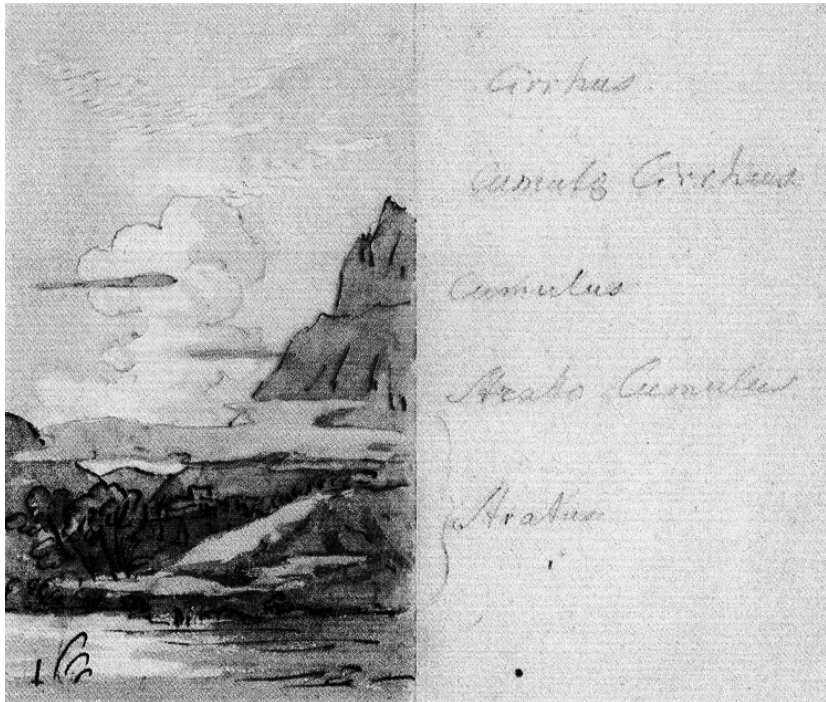 Cirrhus
Cumulo Cirrhus
Cumulus
Strato Cumulus
Stratus